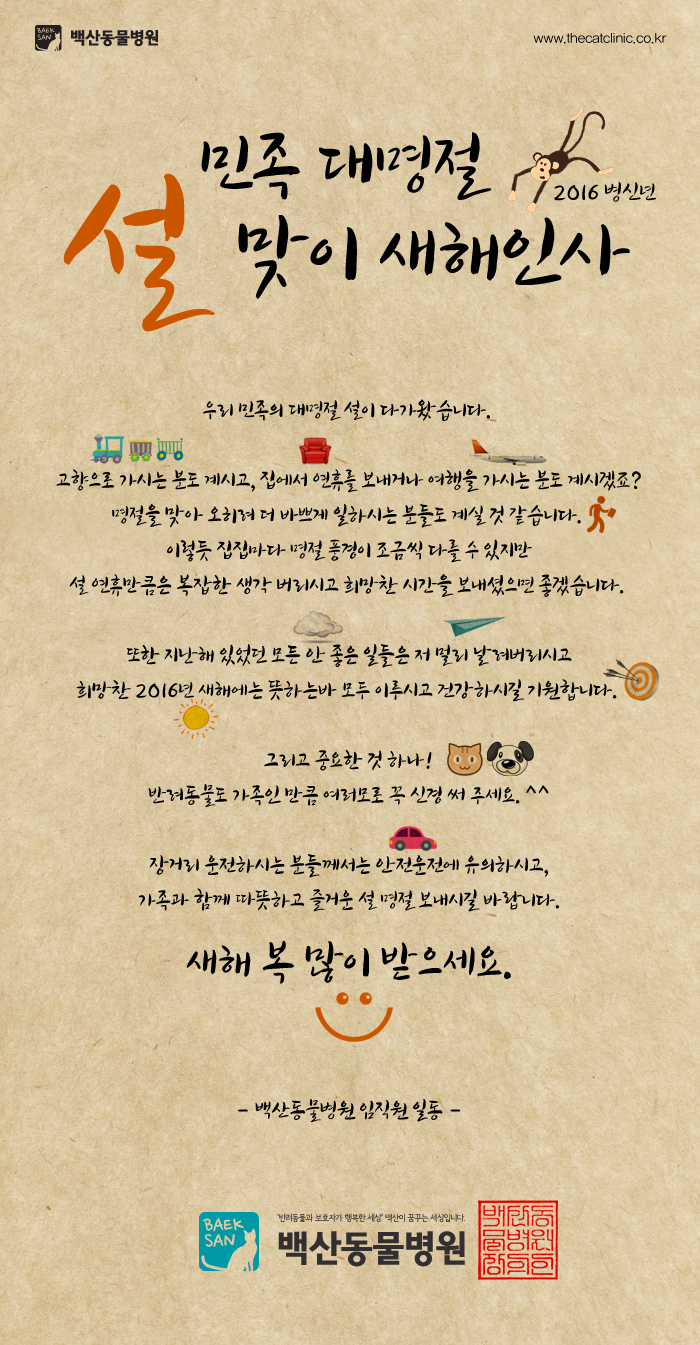 BAEK SAN 백산동물병원
www.thecatclinic.co.kr
민족 대명절
2016 병신년
설 맞이 새해인사
우리 민족의 대명절 설이 다가왔습니다.
고향으로 가시는 분도 계시고, 집에서 연휴를 보내거나 여행을 가시는 분도 계시겠죠?
명절을 맞아 오히려 더 바쁘게 일하시는 분들도 계실 것 같습니다.
이렇듯 집집마다 명절 풍경이 조금씩 다를 수 있지만
설 연휴만큼은 복잡한 생각 버리시고 희망찬 시간을 보내셨으면 좋겠습니다.
또한 지난해 있었던 모든 안 좋은 일들은 저 멀리 날려버리시고
희망찬 2016년 새해에는 뜻하는바 모두 이루시고 건강하시길 기원합니다.
그리고 중요한 것 하나!
반려동물도 가족인 만큼 여러모로 꼭 신경 써 주세요. ^^
장거리 운전하시는 분들께서는 안전운전에 유의하시고,
가족과 함께 따뜻하고 즐거운 설 명절 보내시길 바랍니다.
새해 복 많이 받으세요.
- 백산동물병원 임직원 일동 -
BAEK
SAN
"반려동물과 보호자가 행복한 세상" 백산이 꿈꾸는 세상입니다.
백산동물병원